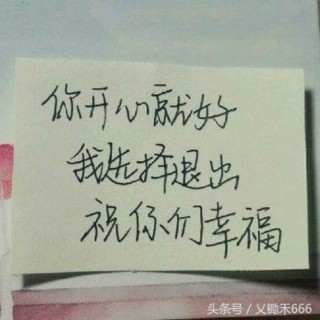 你开心就好
我选择退出
祝你们幸福
头条号／乂锄禾666